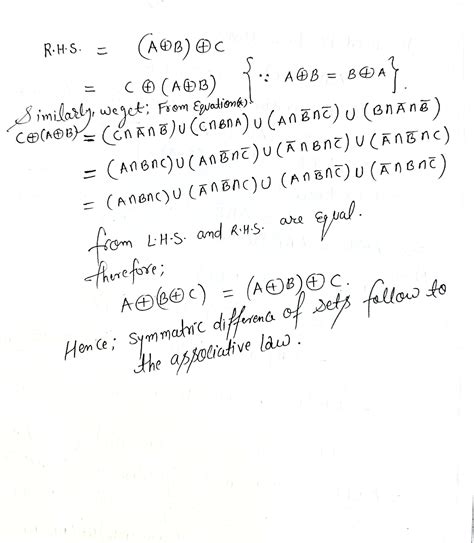 R.H.S. = (A⊕B)⊕C
= C⊕(A⊕B) {∵ A⊕B = B⊕A}.
Similarly, we get; From Equation(a)
C⊕(A⊕B) = (C∩A̅∩B̅)∪(C∩B∩A)∪(A∩B̅∩C̅)∪(B∩A̅∩B̅)
= (A∩B∩C)∪(A∩B̅∩C̅)∪(A̅∩B∩C̅)∪(A̅∩B̅∩C)
= (A∩B∩C)∪(A̅∩B̅∩C)∪(A∩B̅∩C̅)∪(A̅∩B∩C̅)
from L.H.S. and R.H.S. are equal.
therefore;
A⊕(B⊕C) = (A⊕B)⊕C.
Hence; symmatric difference of sets follow to
the assoliative law.